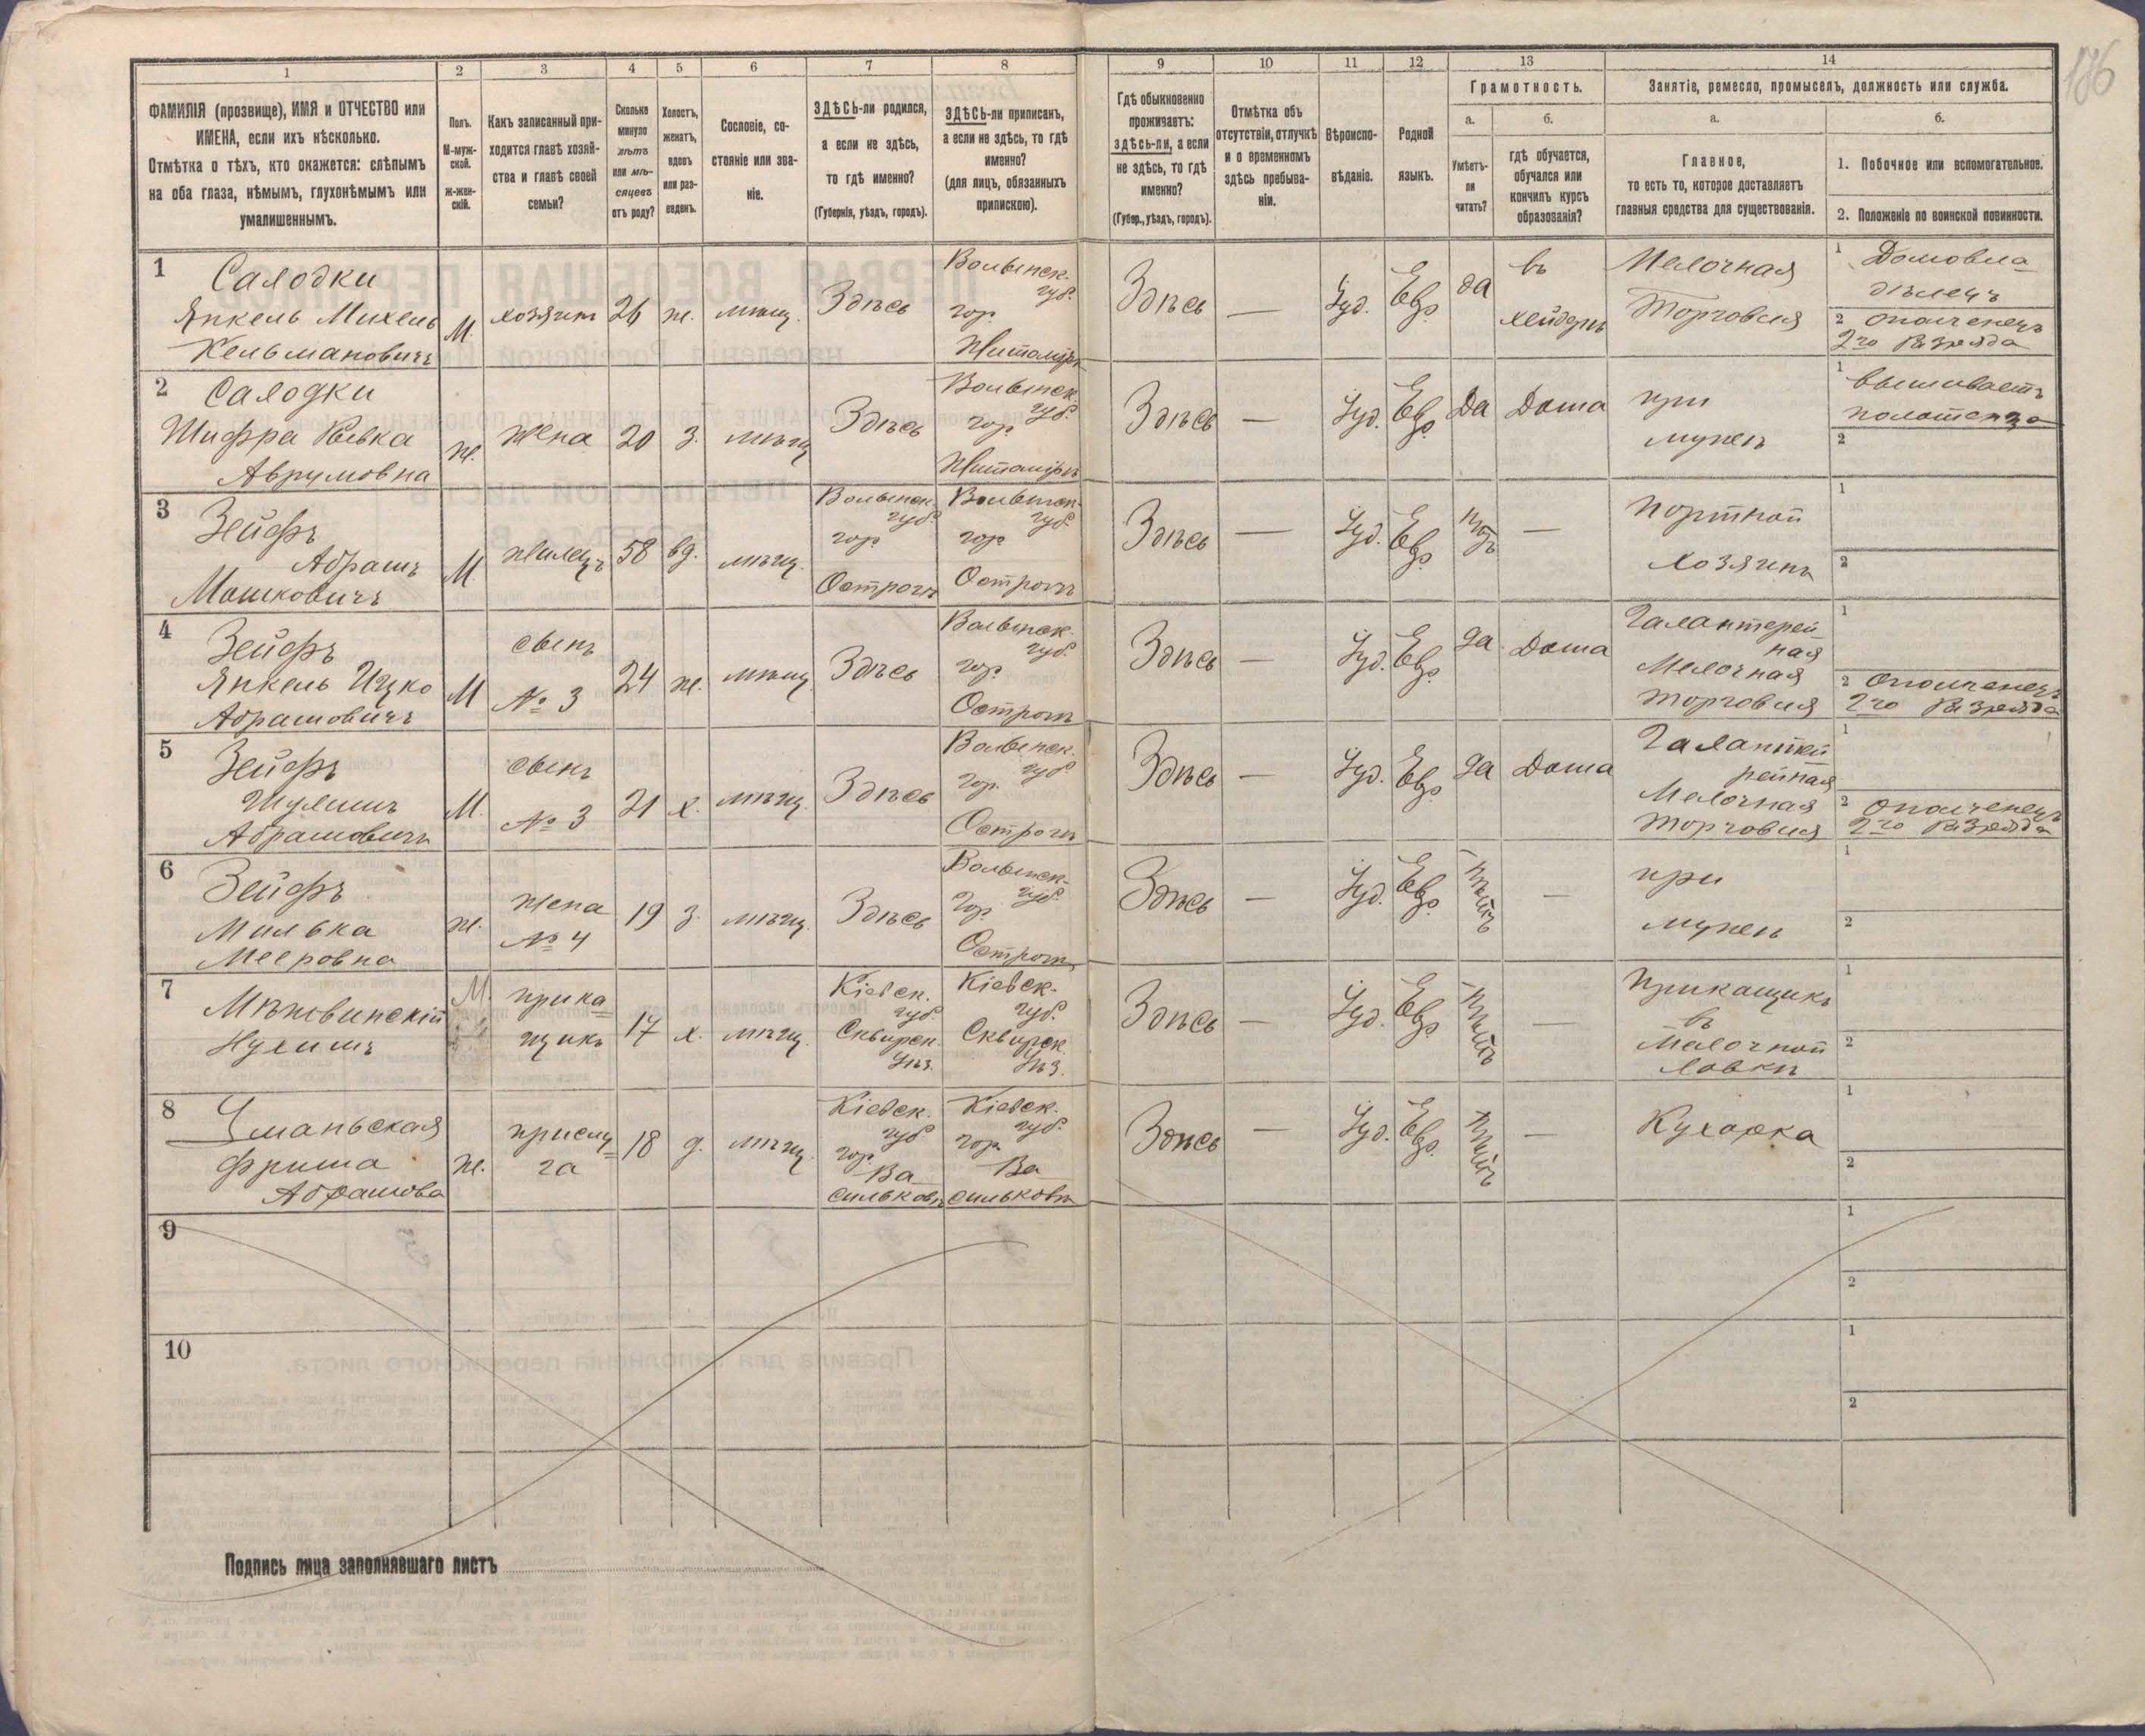 186
1
2
3
4
5
6
7
8
9
10
11
12
13
14
ФАМИЛІЯ (прозвище), ИМЯ и ОТЧЕСТВО или
ИМЕНА, если ихъ нѣсколько.
Отмѣтка о тѣхъ, кто окажется: слѣпымъ
на оба глаза, нѣмымъ, глухонѣмымъ или
умалишеннымъ.
Полъ.
М-муж-
ской.
ж-жен-
скій.
Какъ записанный при-
ходится главѣ хозяй-
ства и главѣ своей
семьи?
Сколько
минуло
лѣтъ
или мѣ-
сяцевъ
отъ роду?
Холостъ,
женатъ,
вдовъ
или раз-
веденъ.
Сословіе, со-
стояніе или зва-
ніе.
ЗДѢСЬ-ли родился,
а если не здѣсь,
то гдѣ именно?
(Губернія, уѣздъ, городъ).
ЗДѢСЬ-ли приписанъ,
а если не здѣсь, то гдѣ
именно?
(для лицъ, обязанныхъ
припискою).
Гдѣ обыкновенно
проживаетъ:
здѣсь-ли, а если
не здѣсь, то гдѣ
именно?
(Губер., уѣздъ, городъ).
Отмѣтка объ
отсутствіи, отлучкѣ
и о временномъ
здѣсь пребыва-
ніи.
Вѣроиспо-
вѣданіе.
Родной
языкъ.
Грамотность.
а.
Умѣетъ-
ли
читать?
б.
гдѣ обучается,
обучался или
кончилъ курсъ
образованія?
Занятіе, ремесло, промыселъ, должность или служба.
а.
Главное,
то есть то, которое доставляетъ
главныя средства для существованія.
б.
1. Побочное или вспомогательное.
2. Положеніе по воинской повинности.
1
Салодки
Янкель Михель
Кельмановичъ
М.
хозяинъ
26
ж.
мѣщ.
Здѣсь
Волынск.
губ.
гор.
Житоміръ
Здѣсь
—
Іуд.
Евр.
да
въ
хейдеръ
Мелочная
Торговля
1 Домовла
дѣлецъ
2 ополченецъ
2го Разряда
2
Салодки
Шифра Ривка
Аврумовна
ж.
жена
20
з.
мѣщ
Здѣсь
Волынск.
губ.
гор.
Житоміръ
Здѣсь
—
Іуд.
Евр.
Да
Дома
при
мужѣ
1
вышиваетъ
полотенца
2
3
Зейфъ
Абрамъ
Мошковичъ
М
жилецъ
58
вд.
мѣщ.
Волынск.
губ.
гор.
Острогъ
Волынск.
губ.
гор.
Острогъ
Здѣсь
—
Іуд.
Евр.
нѣтъ
—
портной
хозяинъ
1
2
4
Зейфъ
Янкель Ицко
Абрамовичъ
М
сынъ
№ 3
24
ж.
мѣщ
Здѣсь
Волынск.
губ.
гор.
Острогъ
Здѣсь
—
Іуд.
Евр.
да
Дома
Галантерей
ная
Мелочная
торговля
1
2 ополченецъ
2го Разряда
5
Зейфъ
Шулимъ
Абрамовичъ
М.
сынъ
№ 3
21
х.
мѣщ.
Здѣсь
Волынск.
губ
гор.
Острогъ
Здѣсь
—
Іуд.
Евр.
да
Дома
Галанте
рейная
Мелочная
торговля
1
2 ополченецъ
2го Разряда
6
Зейфъ
Милька
Мееровна
ж.
жена
№ 4
19
з.
мѣщ.
Здѣсь
Волынск.
губ.
гор.
Острогъ
Здѣсь
—
Іуд.
Евр.
нѣтъ
—
при
мужѣ
1
2
7
Нухимъ
М.
прика
щикъ
17
х.
мѣщ.
Кіевск.
губ.
Сквирск.
Уѣз.
Кіевск.
губ.
Сквирск.
Уѣз.
Здѣсь
—
Іуд.
Евр.
нѣтъ
—
Прикащикъ
въ
Мелочной
Лавкѣ
1
2
8
Уманьская
Фрима
Абрамова
ж.
прислу
га
18
д.
мѣщ.
Кіевск.
губ
гор.
Ва
сильковъ
Кіевск.
губ.
гор.
Ва
сильковъ
Здѣсь
—
Іуд.
Евр.
нѣтъ
—
Кухарка
1
2
9
1
2
10
1
2
Подпись лица заполнявшаго листъ